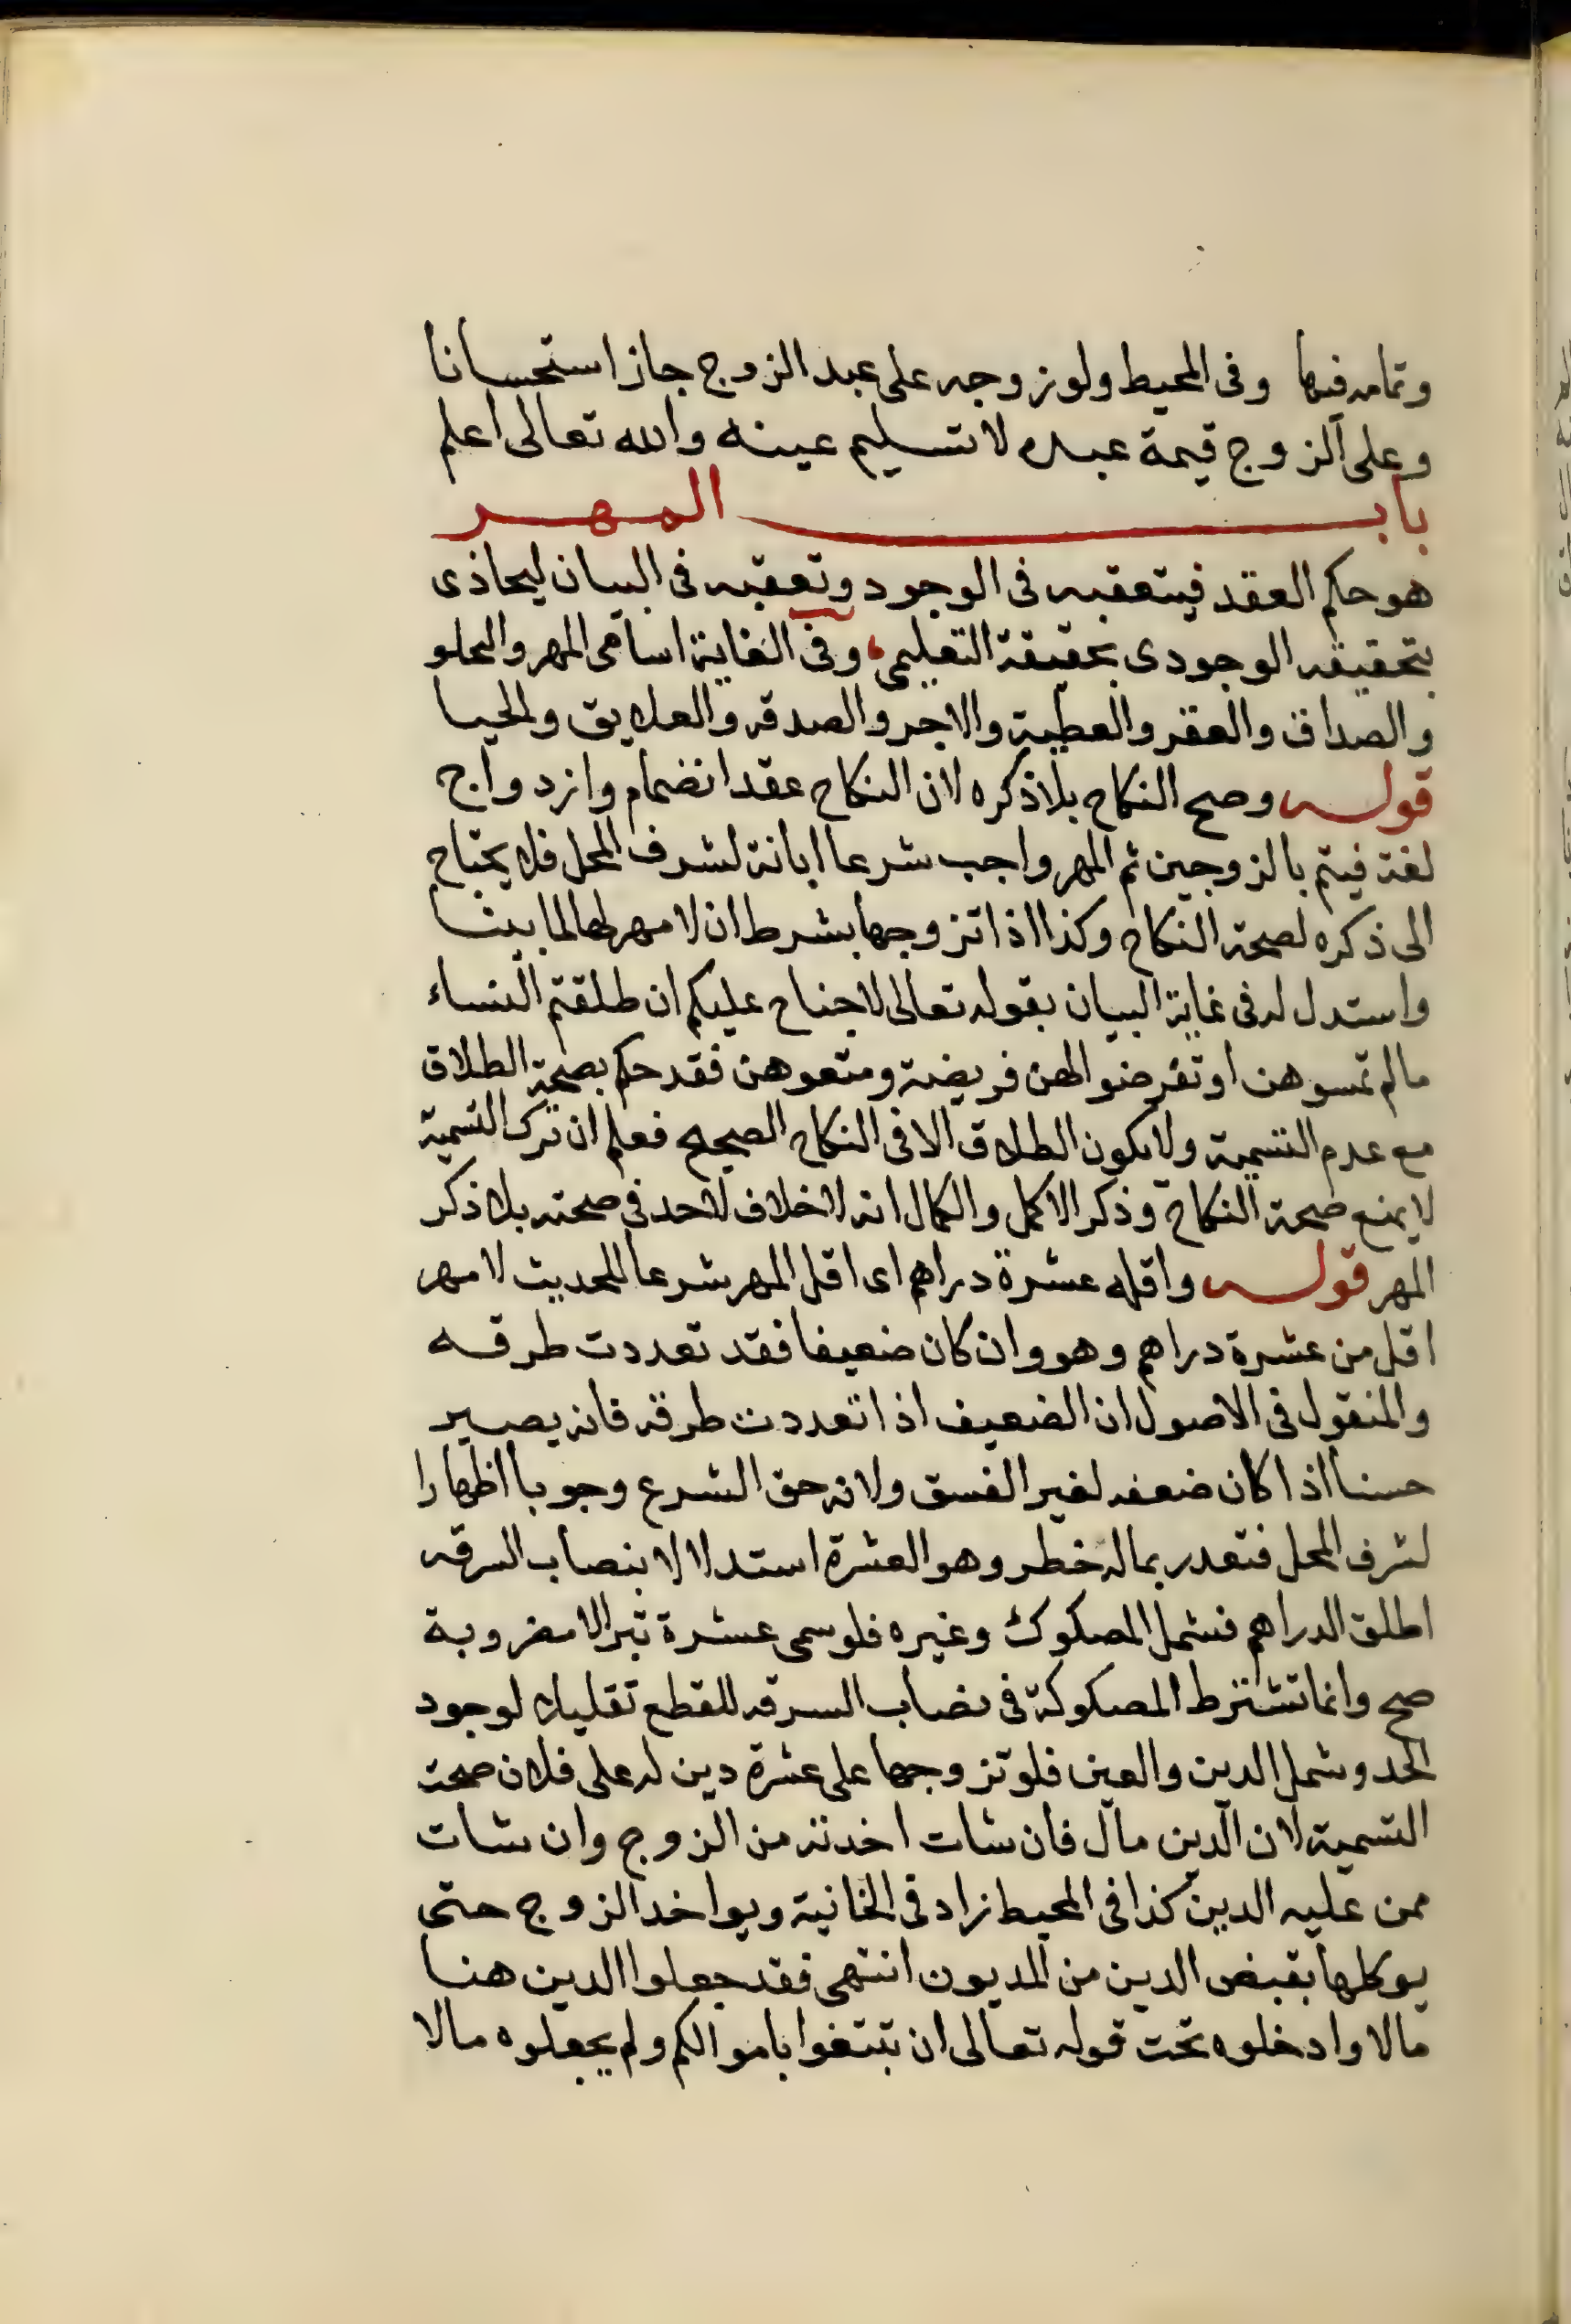 وتمامه فيها وفى المحيط ولو زوجه على عبد الزوج جاز استحسانا
وعلى الزوج قيمة عبده لا تسليم عينه والله تعالى اعلم
باب المهر
هو حكم العقد فيتعقبه فى الوجود وتعقبه فى البيان ليحاذى
بتحقيقه الوجودى بحقيقة التعليمى وفى الغاية اسامى المهر والنحلو
والصداق والعقر والعطية والاجر والصدقه والعلايق والحبا
قوله وصح النكاح بلا ذكره لان النكاح عقد انضمام وازدواج
لغة فيتم بالزوجين ثم المهر واجب شرعا ابانة لشرف المحل فلا يحتاج
الى ذكره لصحة النكاح وكذا اذا تزوجها بشرط ان لا مهر لها لما بينا
واستدل له فى غاية البيان بقوله تعالى لا جناح عليكم ان طلقتم النساء
مالم تمسوهن او تفرضوا لهن فريضة ومتعوهن فقد حكم بصحة الطلاق
مع عدم التسمية ولا يكون الطلاق الا فى النكاح الصحيح فعلم ان ترك التسمية
لا يمنع صحة النكاح وذكر الاكمل والكمال انه لا خلاف لاحد فى صحته بلا ذكر
المهر قوله واقله عشرة دراهم اى اقل المهر شرعا للحديث لا مهر
اقل من عشرة دراهم وهو وان كان ضعيفا فقد تعددت طرقه
والمنقول فى الاصول ان الضعيف اذا تعددت طرقه فانه يصير
حسنا اذا كان ضعفه لغير الفسق ولانه حق الشرع وجوبا اظهارا
لشرف المحل فتعدر بماله خطر وهو العشرة استدلالا بنصاب السرقه
اطلق الدراهم فشمل المصكوك وغيره فلو سمى عشرة تبرا لا مضروبة
صح وانما تشترط المصكوكة فى نصاب السرقه للقطع تقليلا لوجود
الحد وشمل الدين والعين فلو تزوجها على عشرة دين له على فلان صحت
التسمية لان الدين مال فان شات اخدته من الزوج وان شات
ممن عليه الدين كذا فى المحيط زاد فى الخانية ويواخد الزوج حتى
يوكلها بقبض الدين من المديون انتهى فقد جعلوا الدين هنا
مالا وادخلوه تحت قوله تعالى ان تبتغوا باموالكم ولم يجعلوه مالا